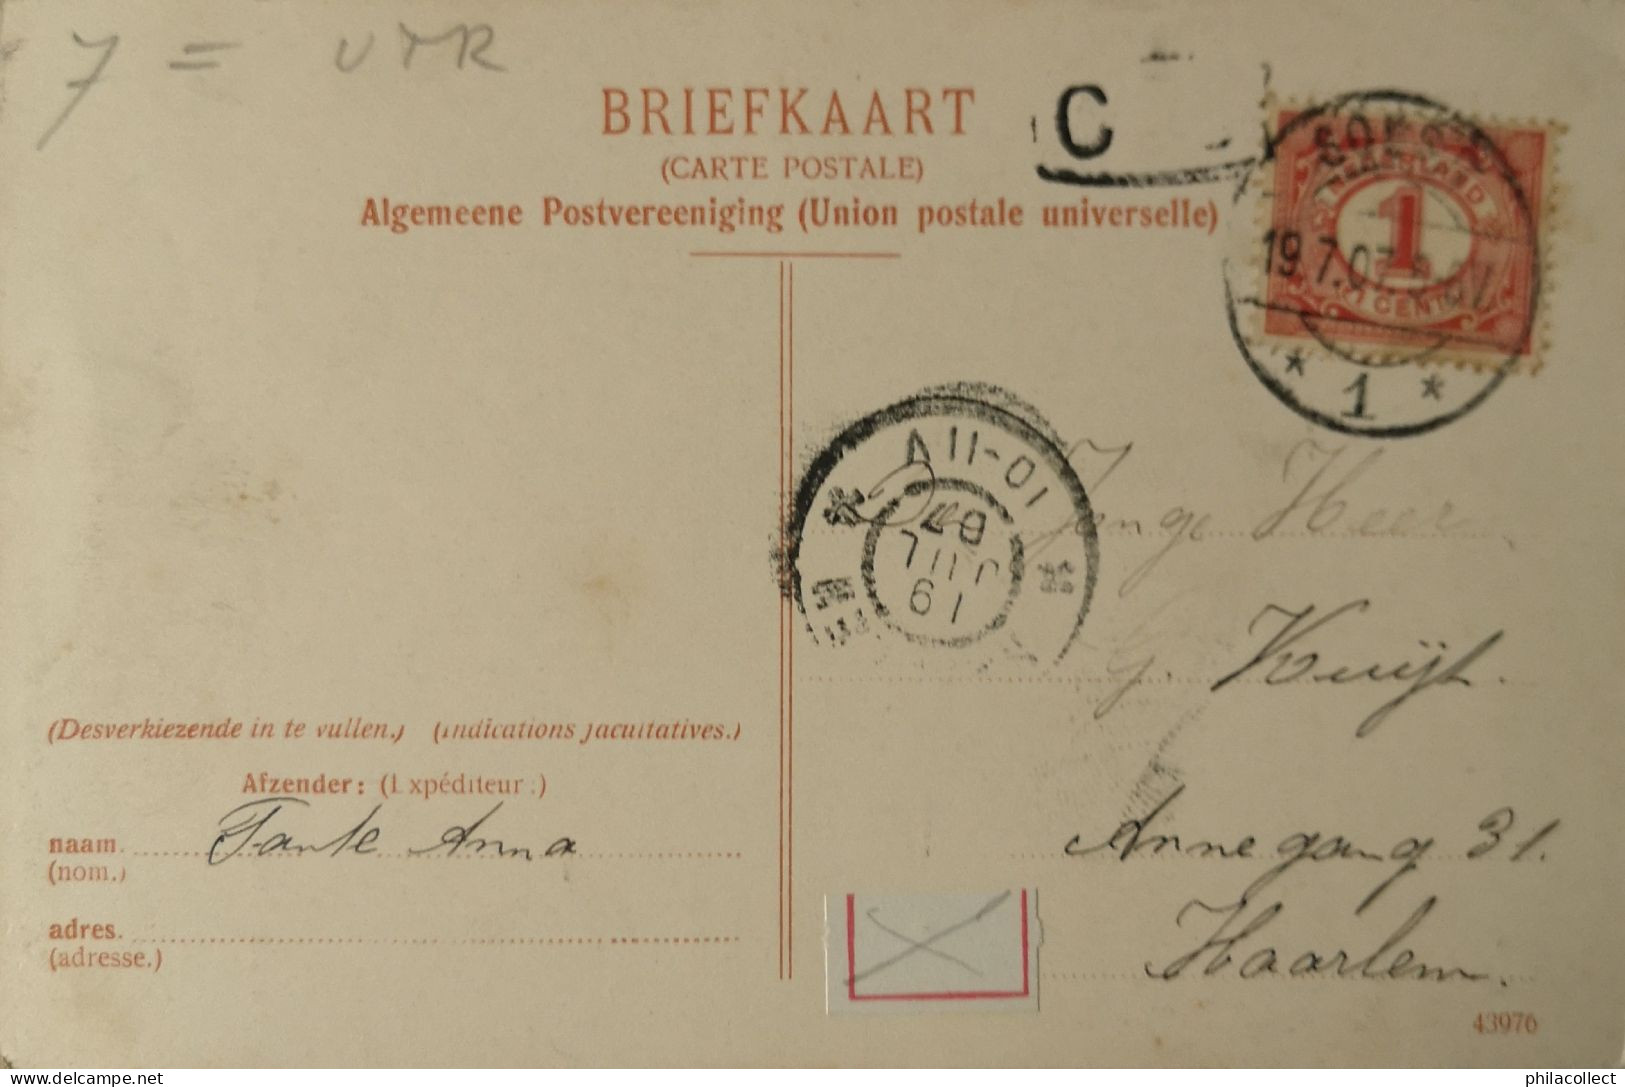 7 = UTR
BRIEFKAART
(CARTE POSTALE)
Algemeene Postvereeniging (Union postale universelle)
C
NEDERLAND
1
CENT
19.7.07
* 1 *
10-11 V
19 JUL 07
De Jonge Heer
G. Kuijt.
Annegang 31.
Haarlem.
(Desverkiezende in te vullen.) (Indications facultatives.)
Afzender: (Expéditeur:)
naam. Tante Anna
(nom.)
adres.
(adresse.)
43976
delcampe.net
philacollect